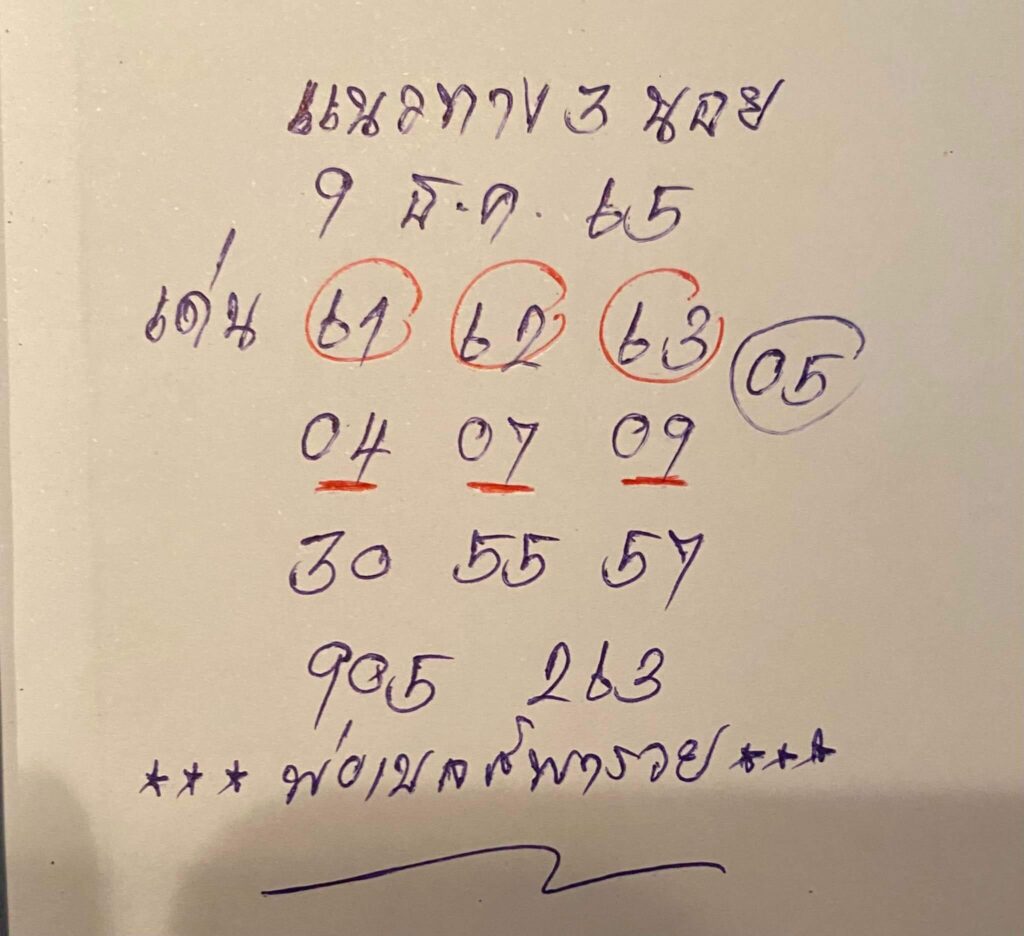 แนวทาง 3 นอย
9 ธ.ค. 65
เด่น 61 62 63 05
04 07 09
30 55 57
905 263
*** พ่อเบลส์พารวย ***